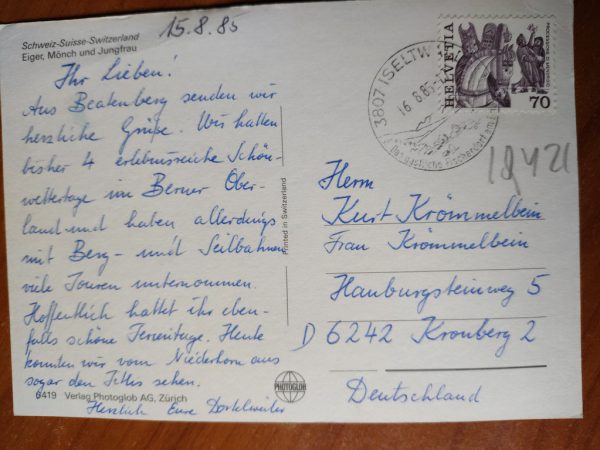 15.8.85
Schweiz-Suisse-Switzerland
Eiger, Mönch und Jungfrau
Ihr Lieben!
Aus Beatenberg senden wir
herzliche Grüße. Wir hatten
bisher 4 erlebnisreiche Schön-
wettertage im Berner Ober-
land und haben allerdings
mit Berg- und Seilbahnen
viele Touren unternommen.
Hoffentlich hattet ihr eben-
falls schöne Ferientage. Heute
konnten wir vom Niederhorn aus
sogar den Titlis sehen.
6419 Verlag Photoglob AG, Zürich
Herzlich Eure
Printed in Switzerland
PHOTOGLOB
3807 ISELTW
16.8.85
HELVETIA
70
Herrn
Kurt Krömmelbein
Frau Krömmelbein
Hainburgsteinweg 5
D 6242 Kronberg 2
Deutschland